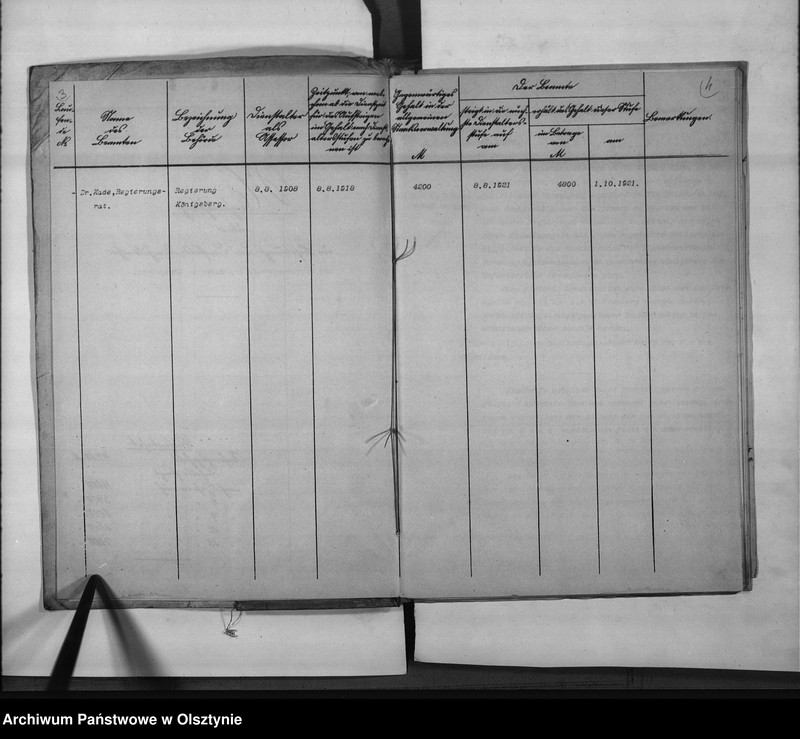 3
4
Lau-
fen-
de
№
Name
des
Beamten
Bezeichnung
der
Behörde
Dienstalter
als
Assessor
Zeitpunkt, von wel-
chem ab die Dienstzeit
für das Aufsteigen
im Gehalt nach Dienst-
altersstufen zu berech-
nen ist
Gegenwärtiges
Gehalt in der
allgemeinen
Staatsverwaltung
M
Der Beamte
steigt in die näch-
ste Dienstalters-
stufe auf
am
erhält das Gehalt dieser Stufe
im Betrage
von
M
am
Bemerkungen.
- Dr. Kade, Regierungs-
rat.
Regierung
Königsberg.
8.8. 1908
8.8.1918
4200
8.8.1921
4800
1.10.1921.
Archiwum Państwowe w Olsztynie